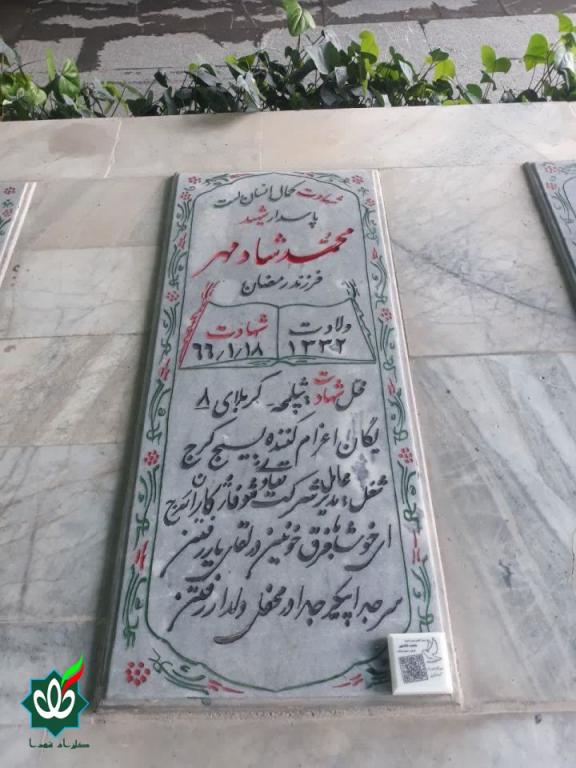 شهادت کمال انسان است
پاسدار شهید
محمد شادمهر
فرزند رمضان
ولادت
۱۳۳۲
شهادت
۶۶/۱/۱۸
محل شهادت: شلمچه - کربلای ۸
یگان اعزام کننده بسیج کرج
شغل: مدیر عامل شرکت تعاونی شوفاژکاران کرج
ای خوشا با فرق خونین در لقای یار رفتن
سر جدا پیکر جدا در محفل دلدار رفتن
گلزار شهدا